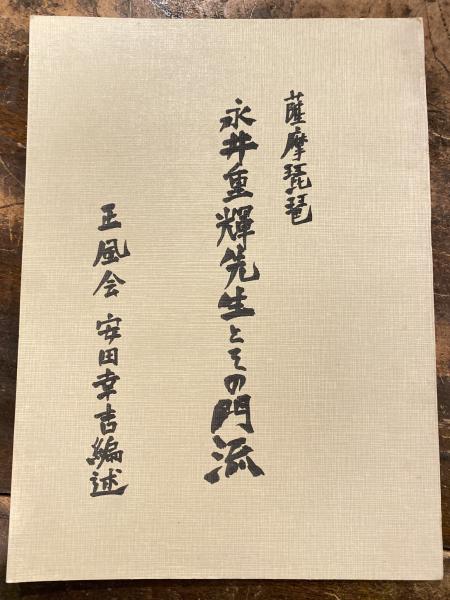 薩摩琵琶
永井重輝先生とその門流
正風会 安田幸吉編述